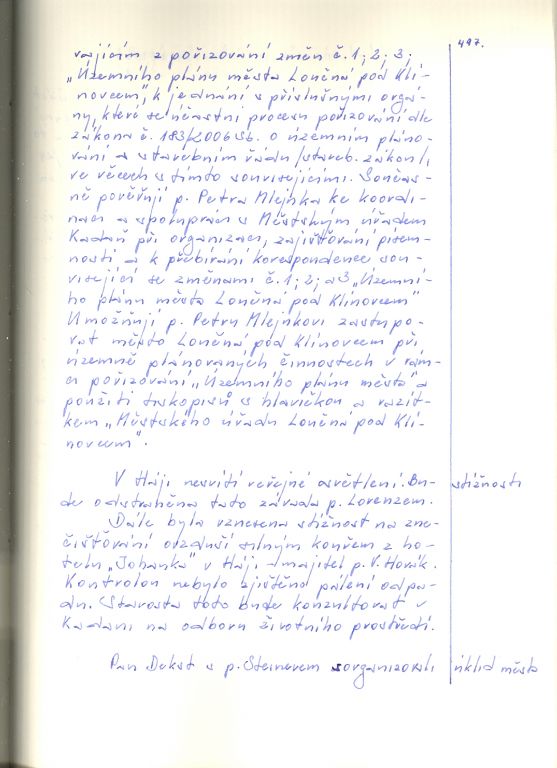 497.
vajícím z pořizování změn č. 1; 2; 3;
„Územního plánu města Loučná pod Klí-
novcem", k jednání s příslušnými orgá-
ny, které se účastní procesu pořizování dle
zákona č. 183/2006Sb. o územním pláno-
vání a stavebním řádu /staveb. zákon/,
ve věcech s tímto souvisejícími. Součas-
ně pověřuji p. Petra Mlejnka ke koordi-
naci a spolupráci s Městským úřadem
Kadaň při organizaci, zajišťování písem-
ností a k přebírání korespondence sou-
visející se změnami č. 1; 2; a 3 „Územní-
ho plánu města Loučná pod Klínovcem"
Umožňuji p. Petru Mlejnkovi zastupo-
vat město Loučná pod Klínovcem při
územně plánovaných činnostech v rám-
ci pořizování „Územního plánu města" a
použití tiskopisů s hlavičkou a razít-
kem „Městského úřadu Loučná pod Klí-
novcem".
V Háji nesvítí veřejné osvětlení. Bu- stížnosti
de odstraněna tato závada p. Lorenzem.
Dále byla vznesena stížnost na zne-
čišťování ovzduší silným kouřem z ho-
telu „Johanka" v Háji - majitel p. V. Horík.
Kontrolou nebylo zjištěno pálení odpa-
du. Starosta toto bude konzultovat v
Kadani na odboru životního prostředí.
Pan Dekst s p. Steinerem zorganizovali úklid města